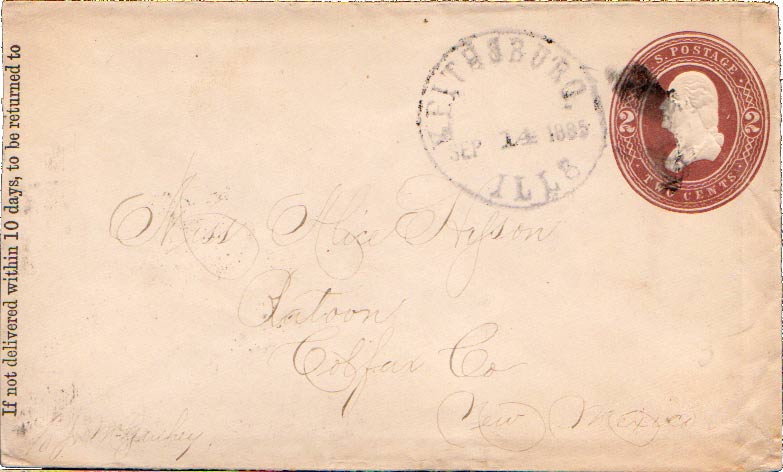 If not delivered within 10 days, to be returned to
KEITHSBURG.
SEP 14 1885
ILLS
U.S. POSTAGE
2 2
TWO CENTS
Miss Alice
Ratoon
Colfax Co
New Mexico